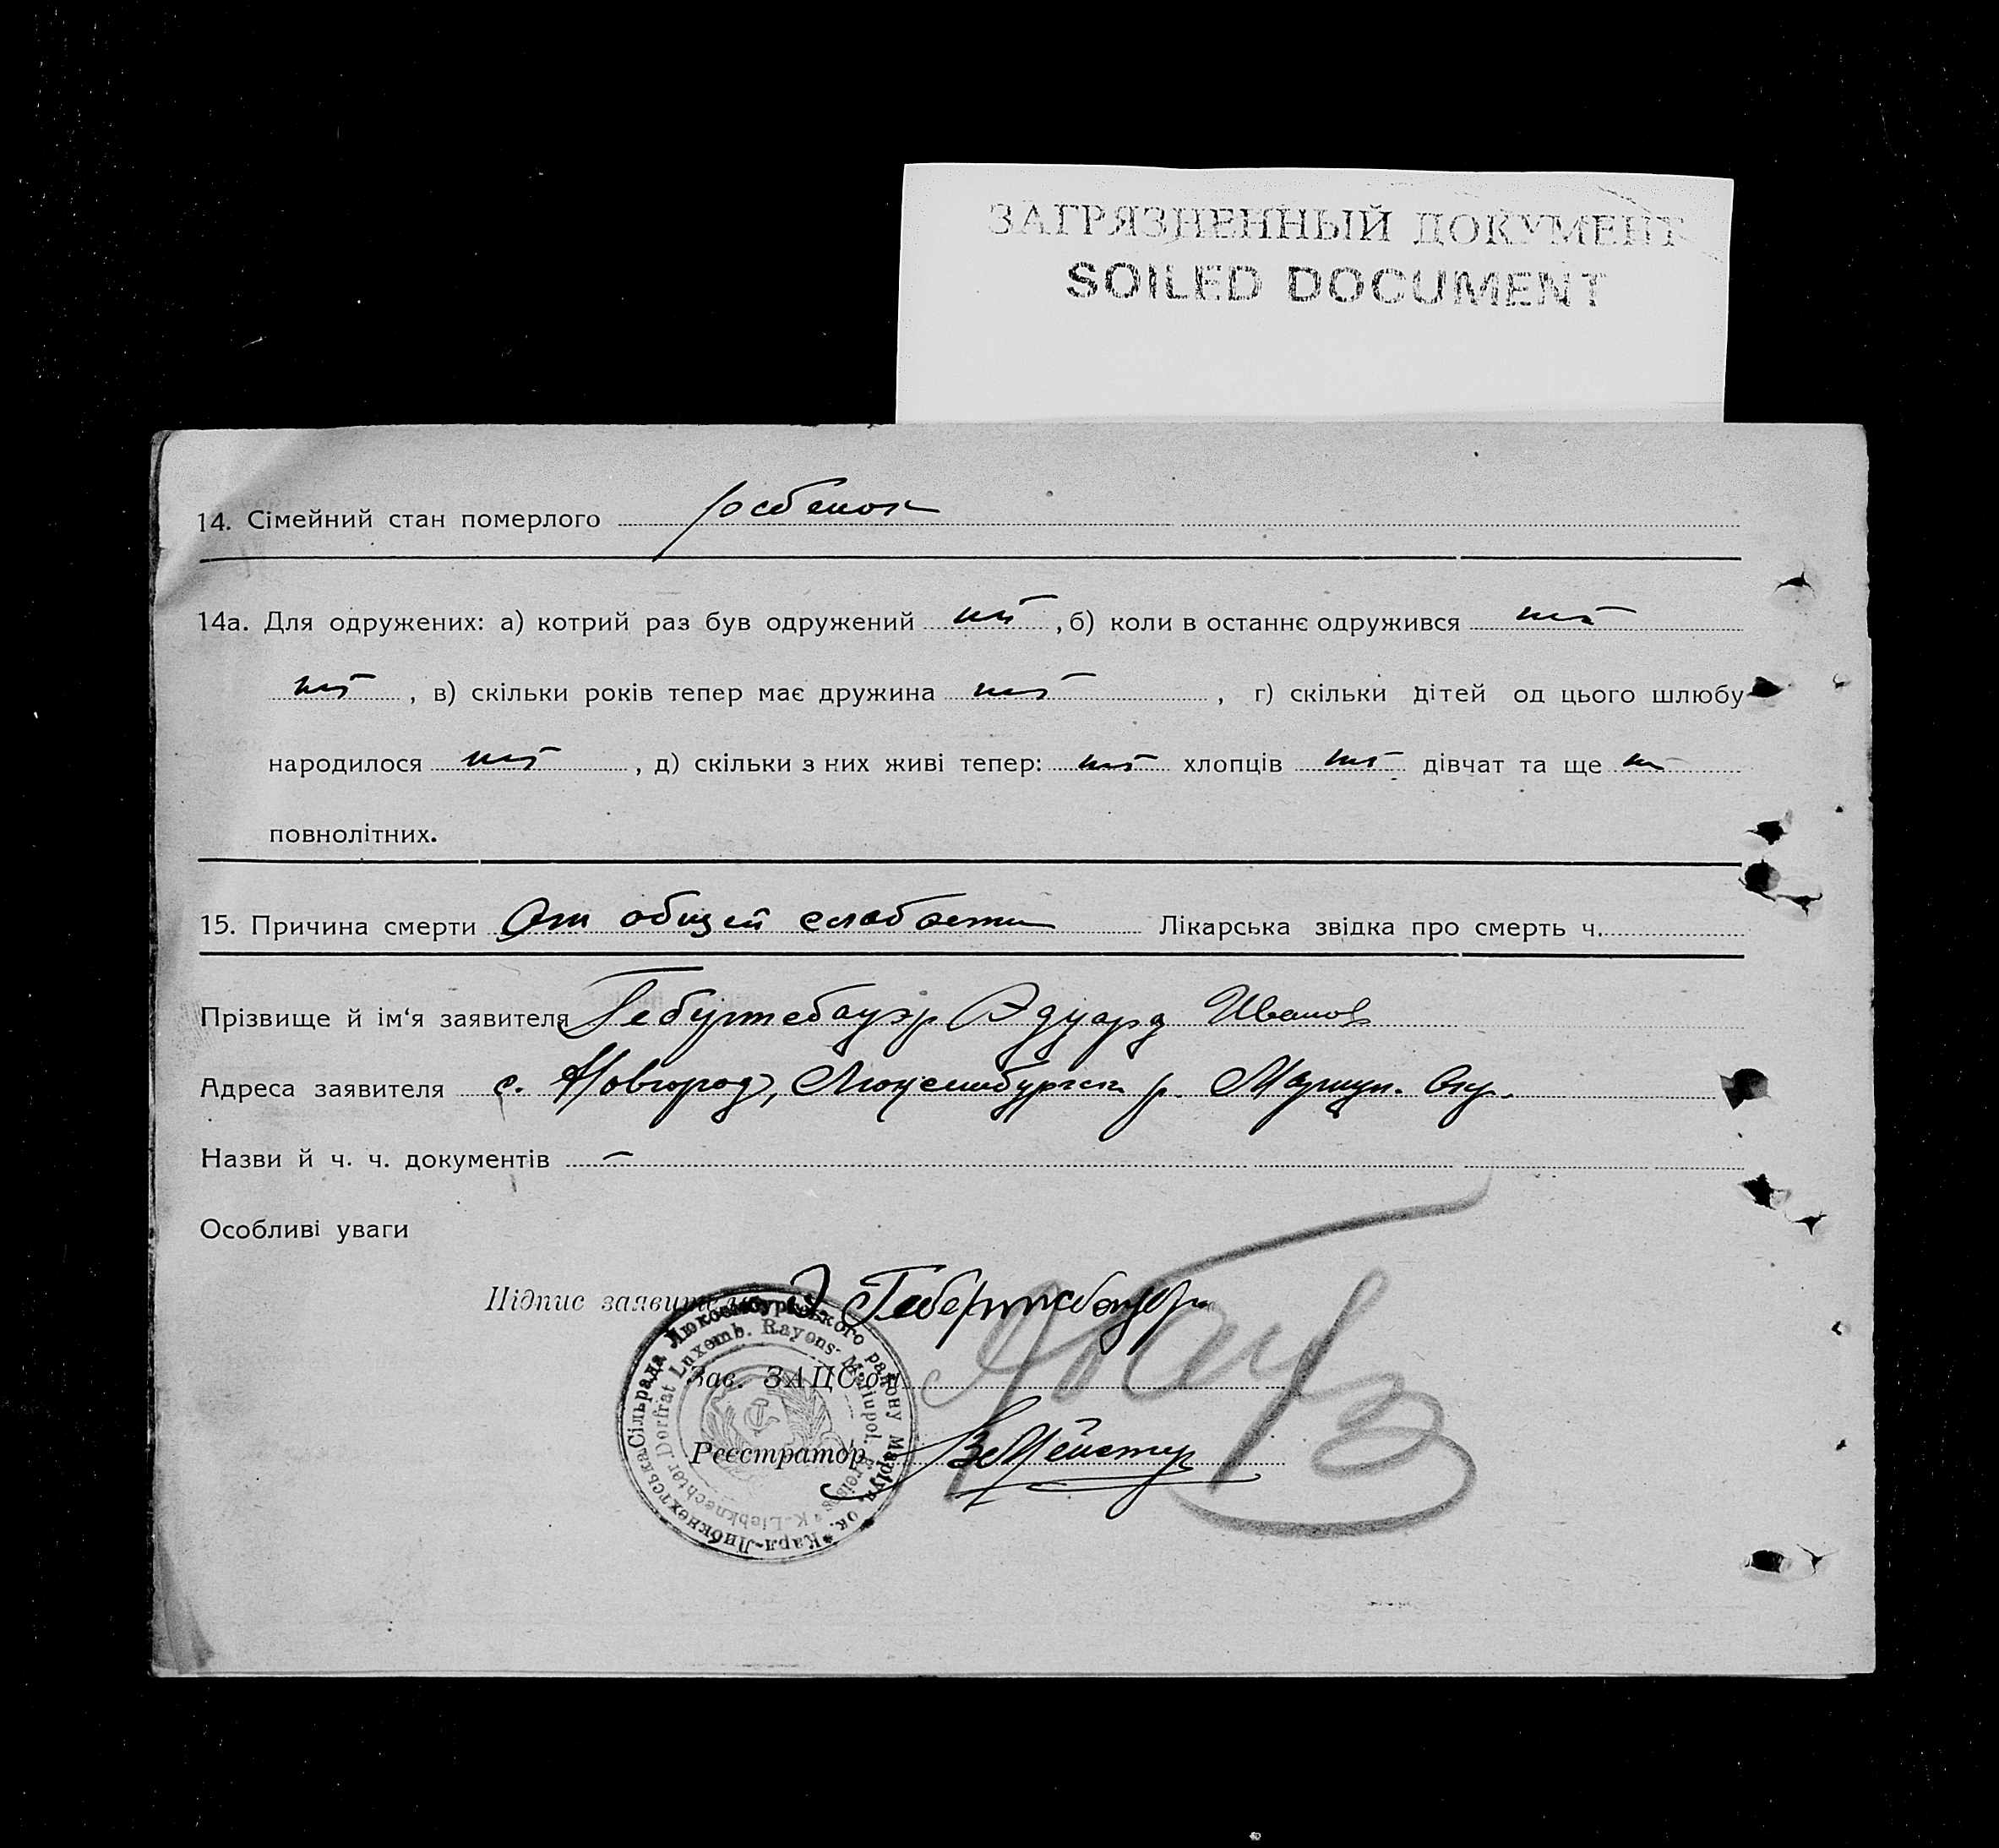 ЗАГРЯЗНЕННЫЙ ДОКУМЕНТ
SOILED DOCUMENT
14. Сімейний стан померлого ребенок
14а. Для одружених: а) котрий раз був одружений нет, б) коли в останнє одружився нет
нет, в) скільки років тепер має дружина нет, г) скільки дітей од цього шлюбу
народилося нет, д) скільки з них живі тепер: нет хлопців нет дівчат та ще
повнолітних.
15. Причина смерти От общей слабости Лікарська звідка про смерть ч.
Прізвище й ім'я заявителя Эдуард Иванов
Адреса заявителя с. Новгород, р. Мариуп. Окр.
Назви й ч. ч. документів —
Особливі уваги
Підпис заявителя
Зав. ЗАЦС'ом
Реєстратор
Карл-Либкнехтська Сільрада Люксембургського району Маріуп. ок.
K.-Liebknechter Dorfrat Luxemb. Rayons Mariupol. Kreises